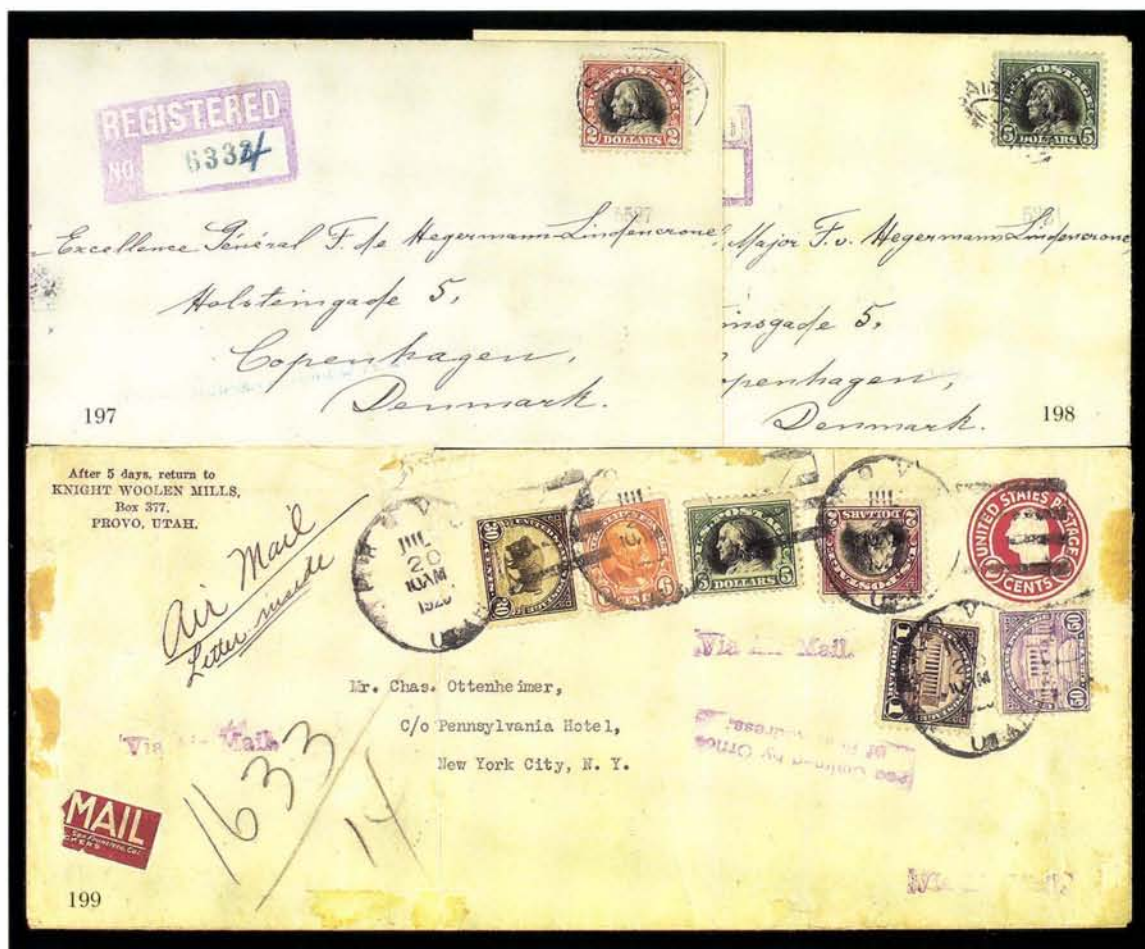 REGISTERED
NO. 6334
U.S. POSTAGE
2 DOLLARS 2
Excellence Général F. de Hegermann-Lindencrone
Holsteinsgade 5,
Copenhagen,
Denmark.
197
POSTAGE
5 DOLLARS 5
Major F. v. Hegermann-Lindencrone,
insgade 5,
penhagen,
Denmark.
198
After 5 days, return to
KNIGHT WOOLEN MILLS,
Box 377,
PROVO, UTAH.
Air Mail
Letter inside
JUL
20
10 AM
192
30
6
POSTAGE
5 DOLLARS 5
2 DOLLARS 2
UNITED STATES POSTAGE
CENTS
1
50
Via Mail.
Mr. Chas. Ottenheimer,
C/o Pennsylvania Hotel,
New York City, N. Y.
by Office
of
Via Mail.
1633
14
MAIL
San Francisco, Cal.
199